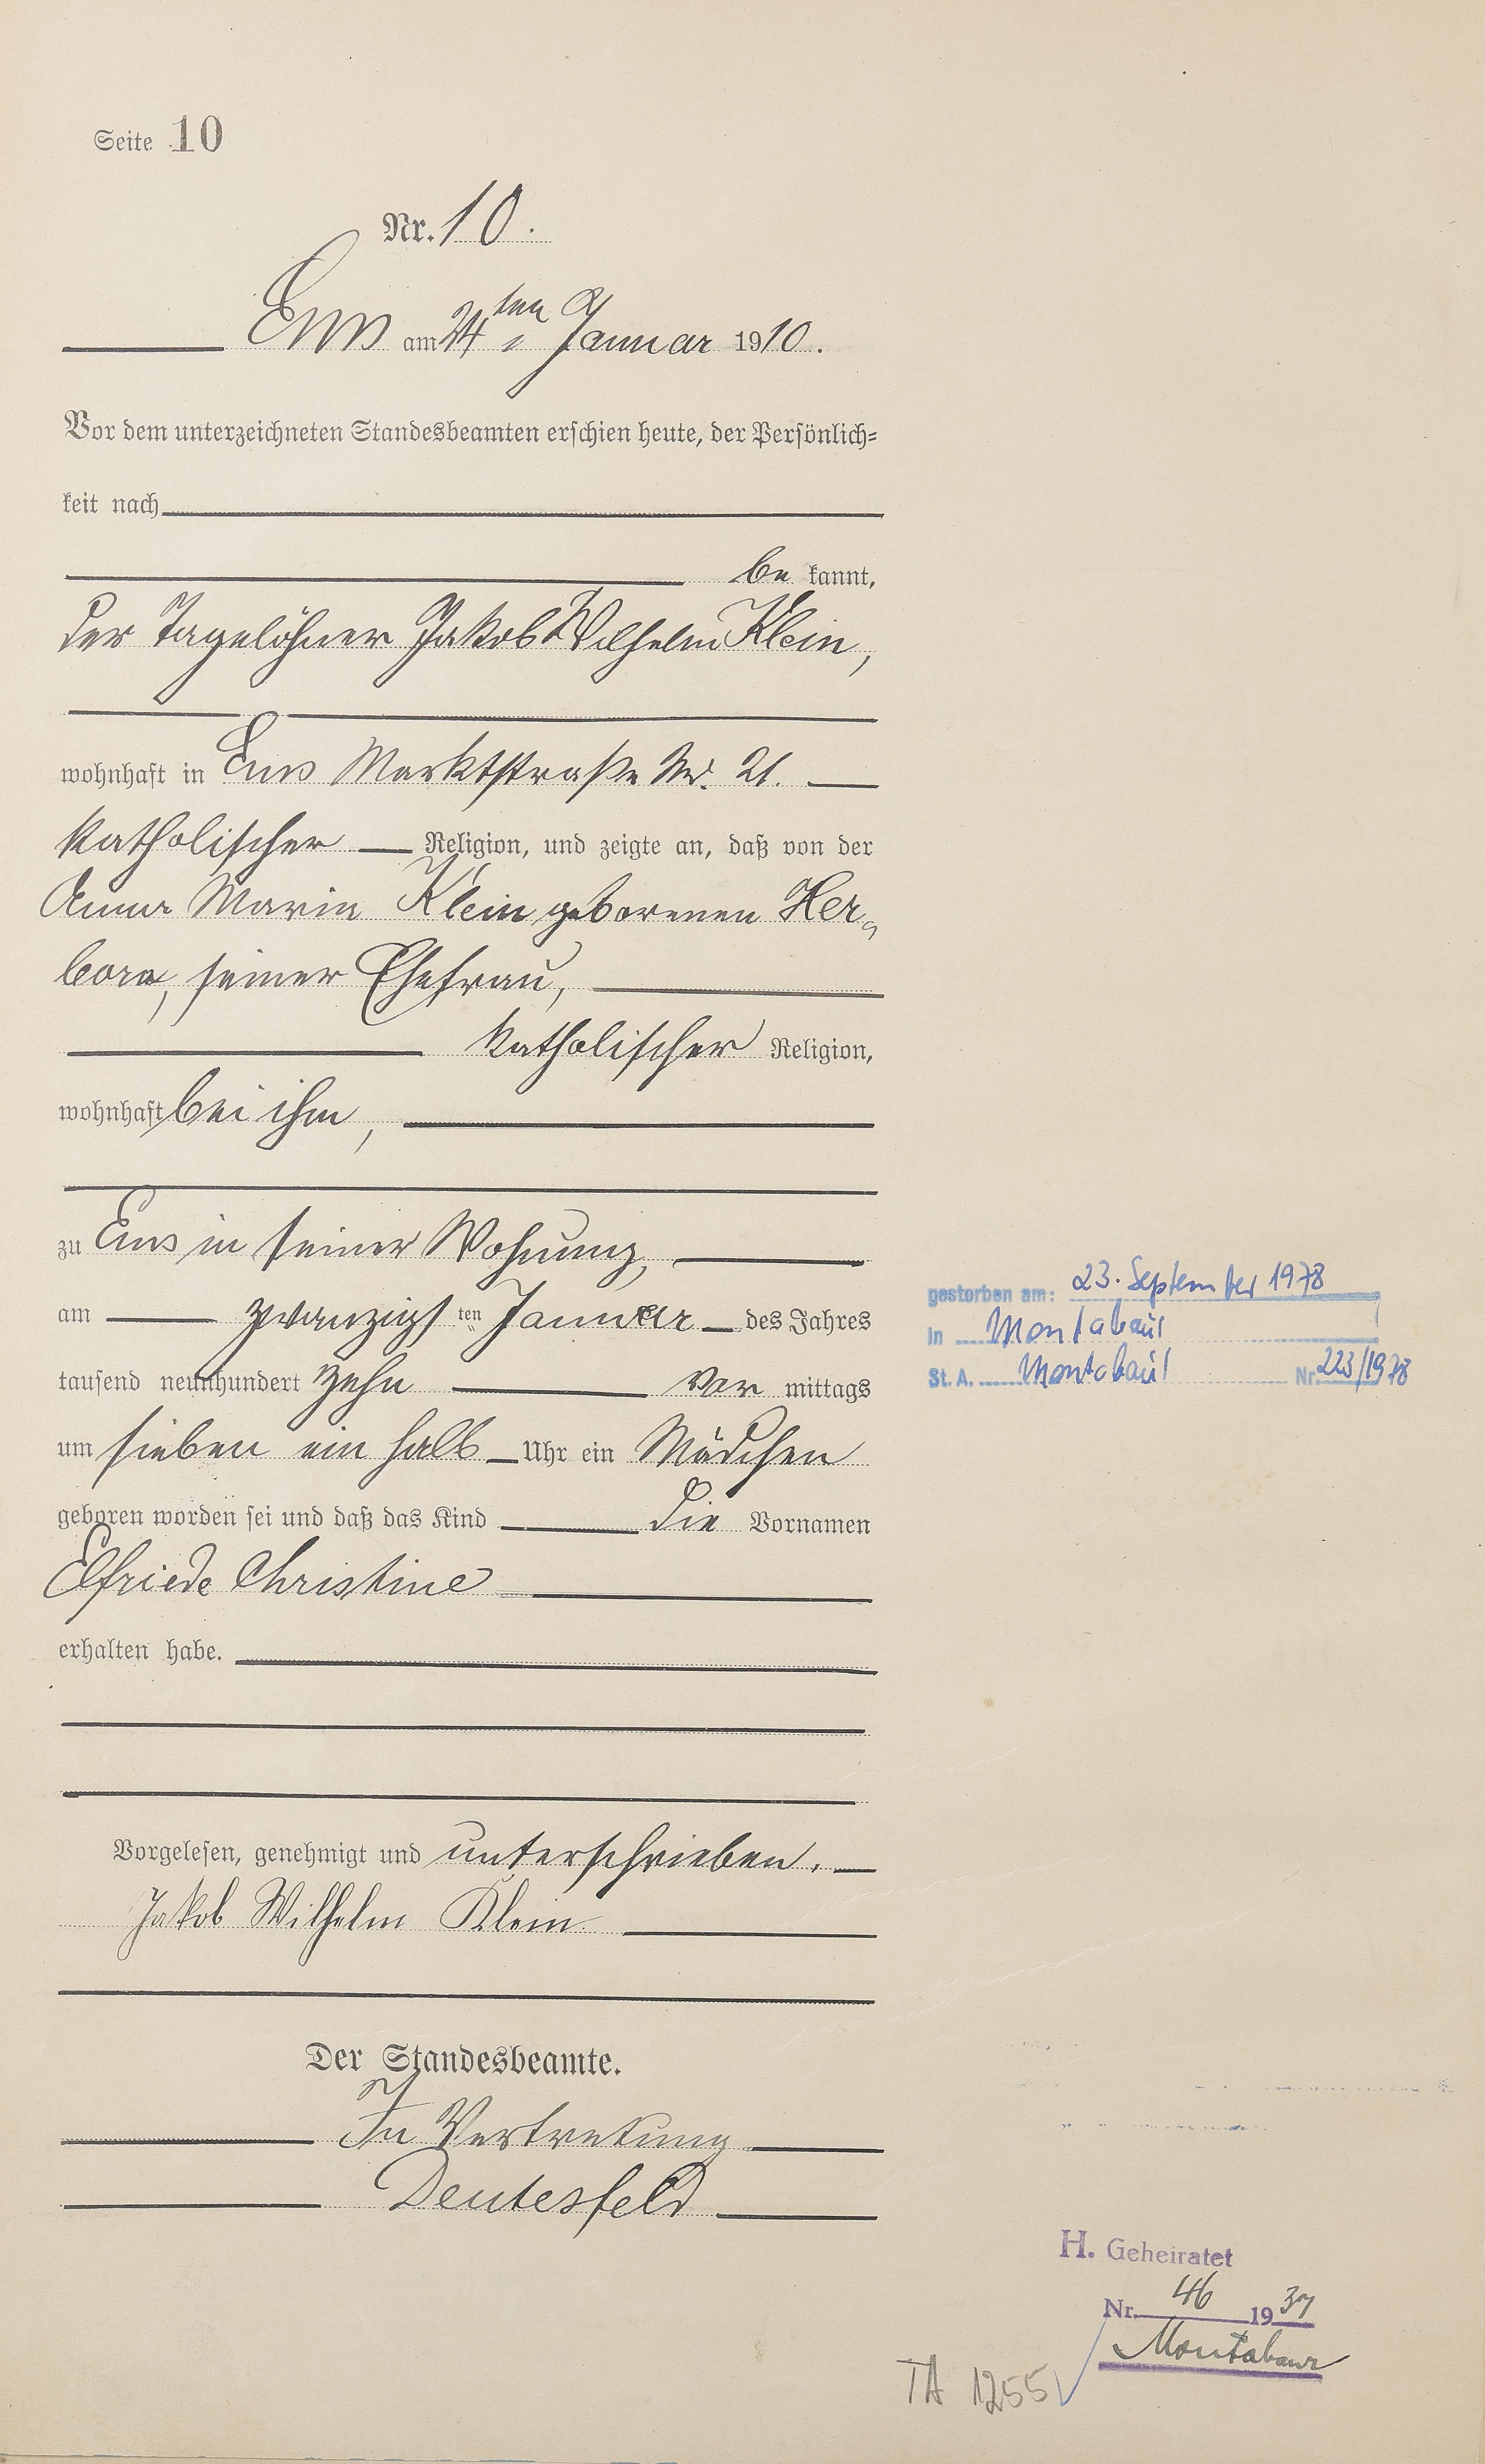 Seite 10
Nr. 10.
Ems am 24ten Januar 1910.
Vor dem unterzeichneten Standesbeamten erschien heute, der Persönlich-
keit nach
be kannt,
der Tagelöhner Jakob Wilhelm Klein,
wohnhaft in Ems Marktstraße Nr. 21.
katholischer Religion, und zeigte an, daß von der
Anna Maria Klein geborenen Her-
born, seiner Ehefrau,
katholischer Religion,
wohnhaft bei ihm,
zu Ems in seiner Wohnung,
am zwanzigsten Januar des Jahres
tausend neunhundert zehn Vor mittags
um sieben ein halb Uhr ein Mädchen
geboren worden sei und daß das Kind die Vornamen
Elfriede Christine
erhalten habe.
Vorgelesen, genehmigt und unterschrieben.
Jakob Wilhelm Klein
Der Standesbeamte.
In Vertretung
Deutesfeld
gestorben am: 23. September 1978
in Montabaur
St. A. Montabaur Nr. 223/1978
H. Geheiratet
Nr. 46 1937
Montabaur
TA 1255